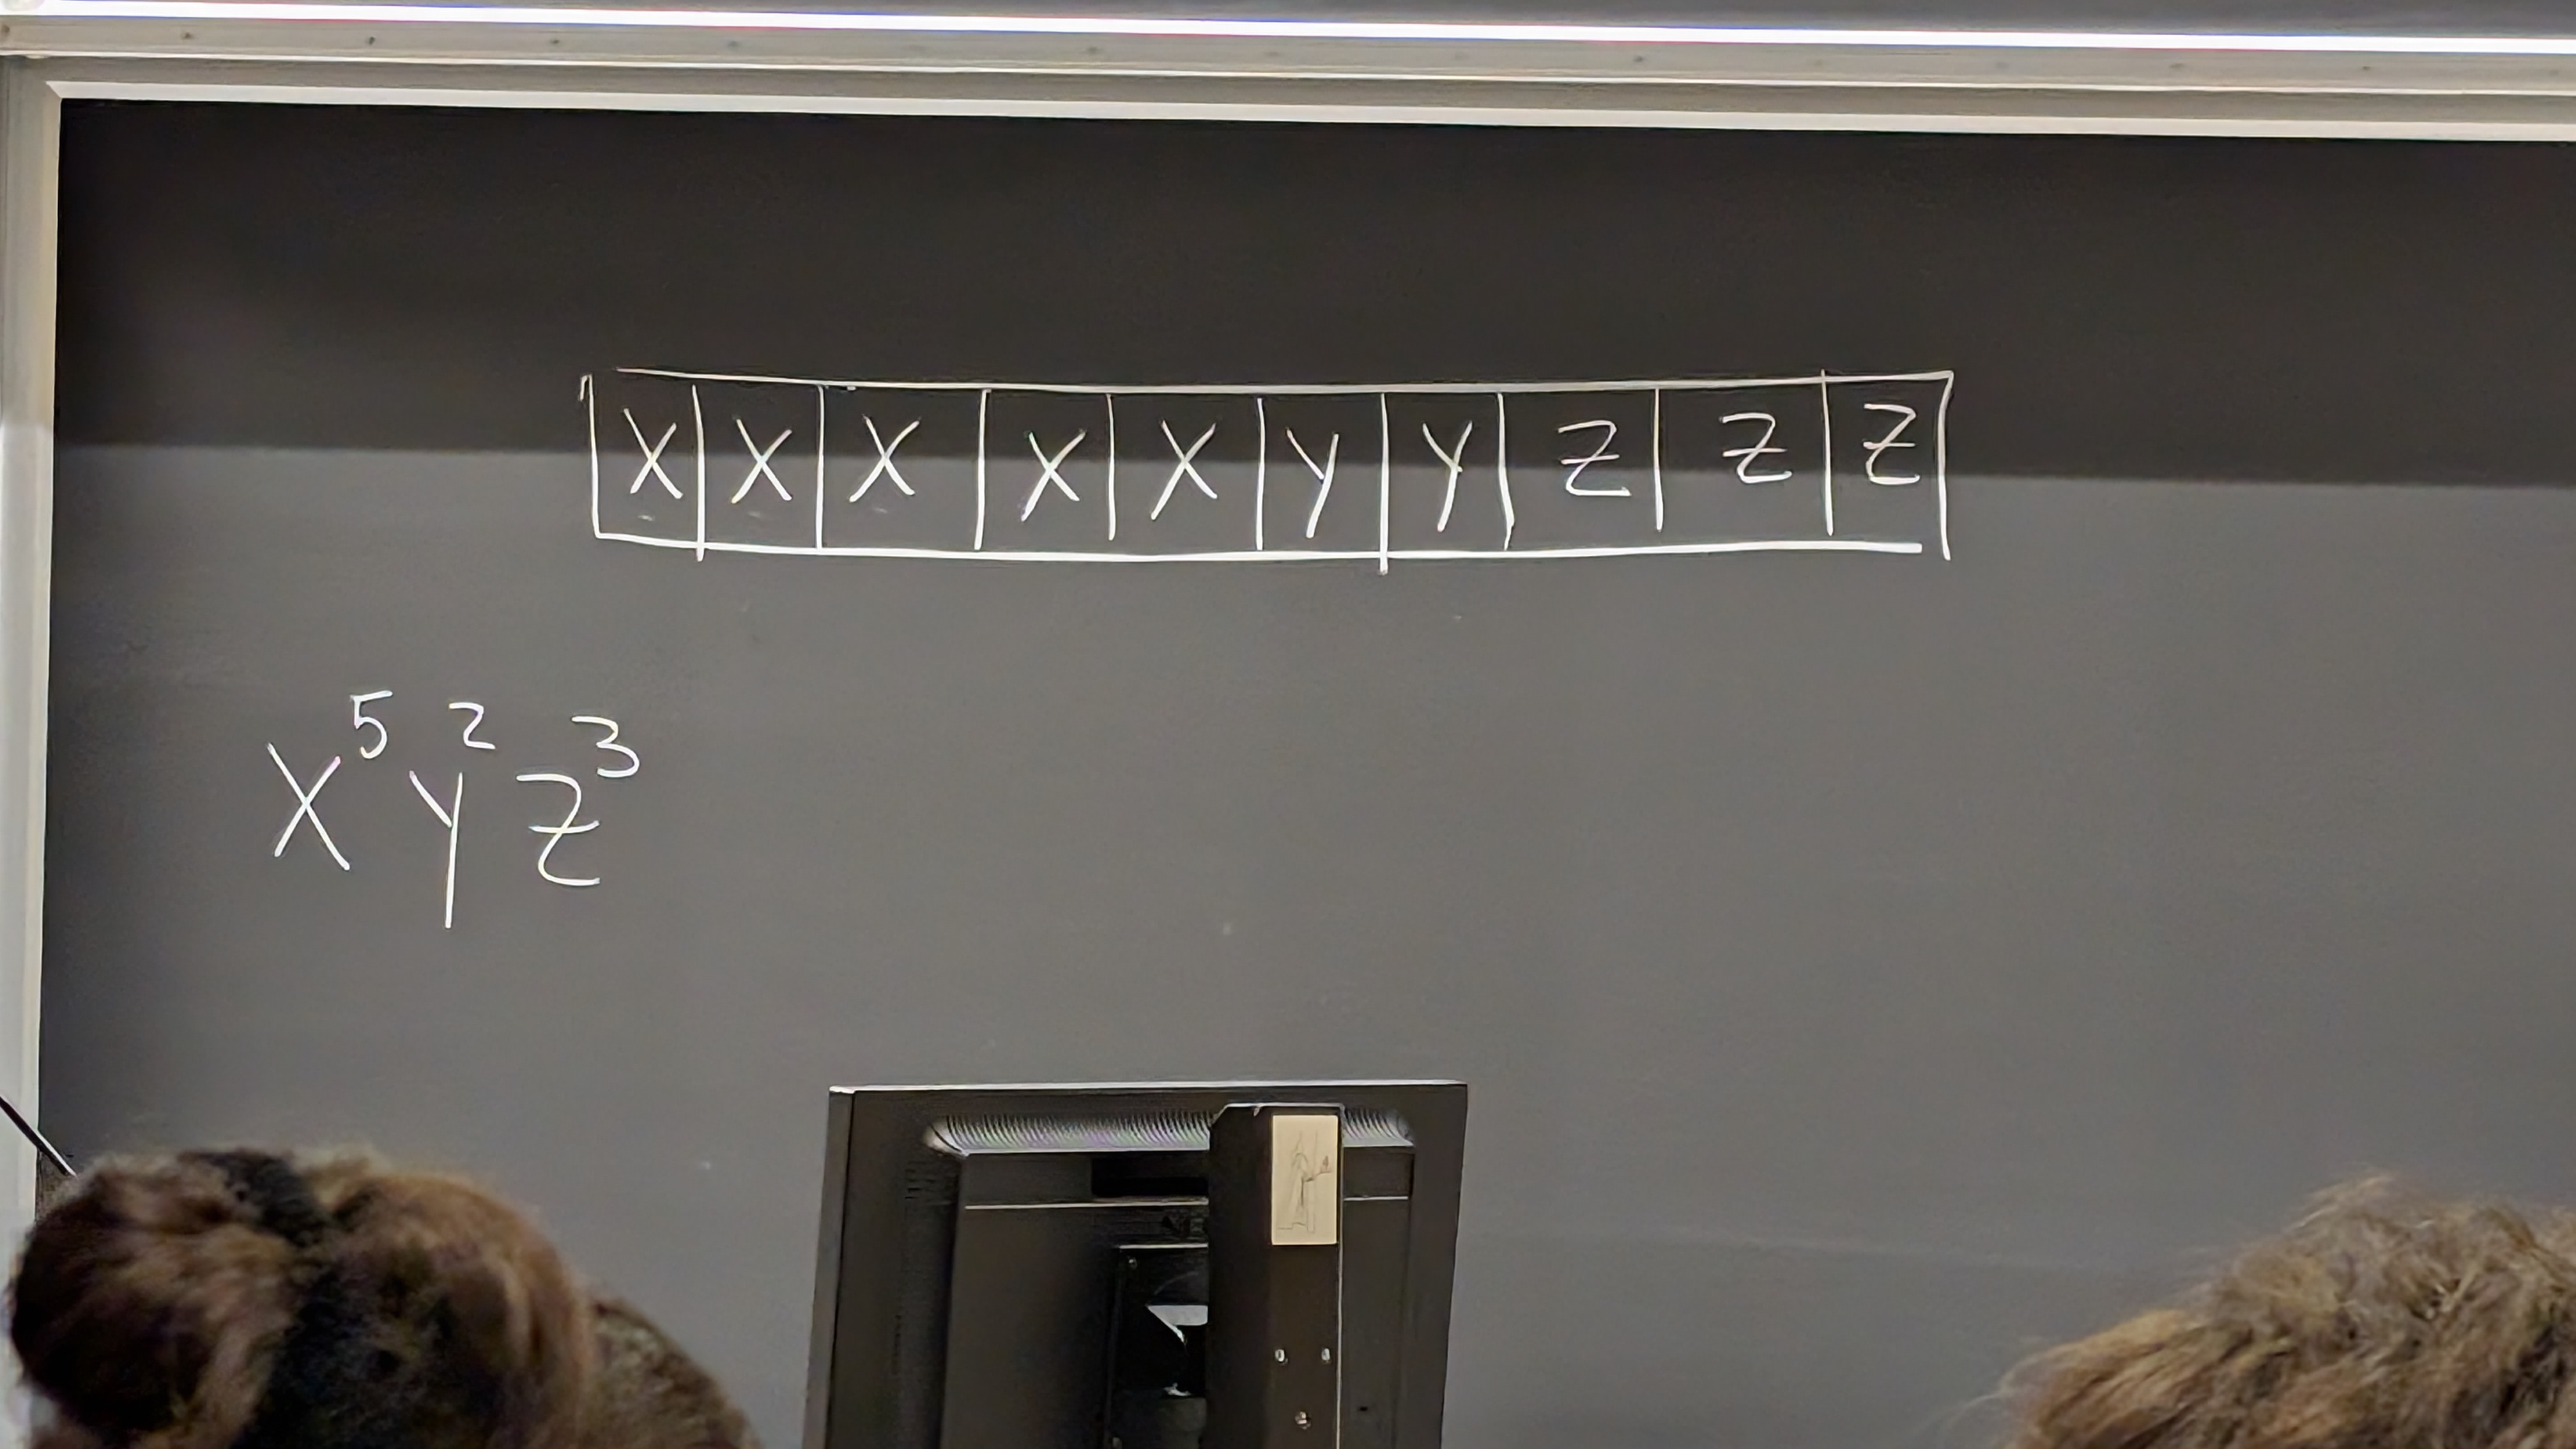 X X X X X Y Y Z Z Z
X⁵ Y² Z³